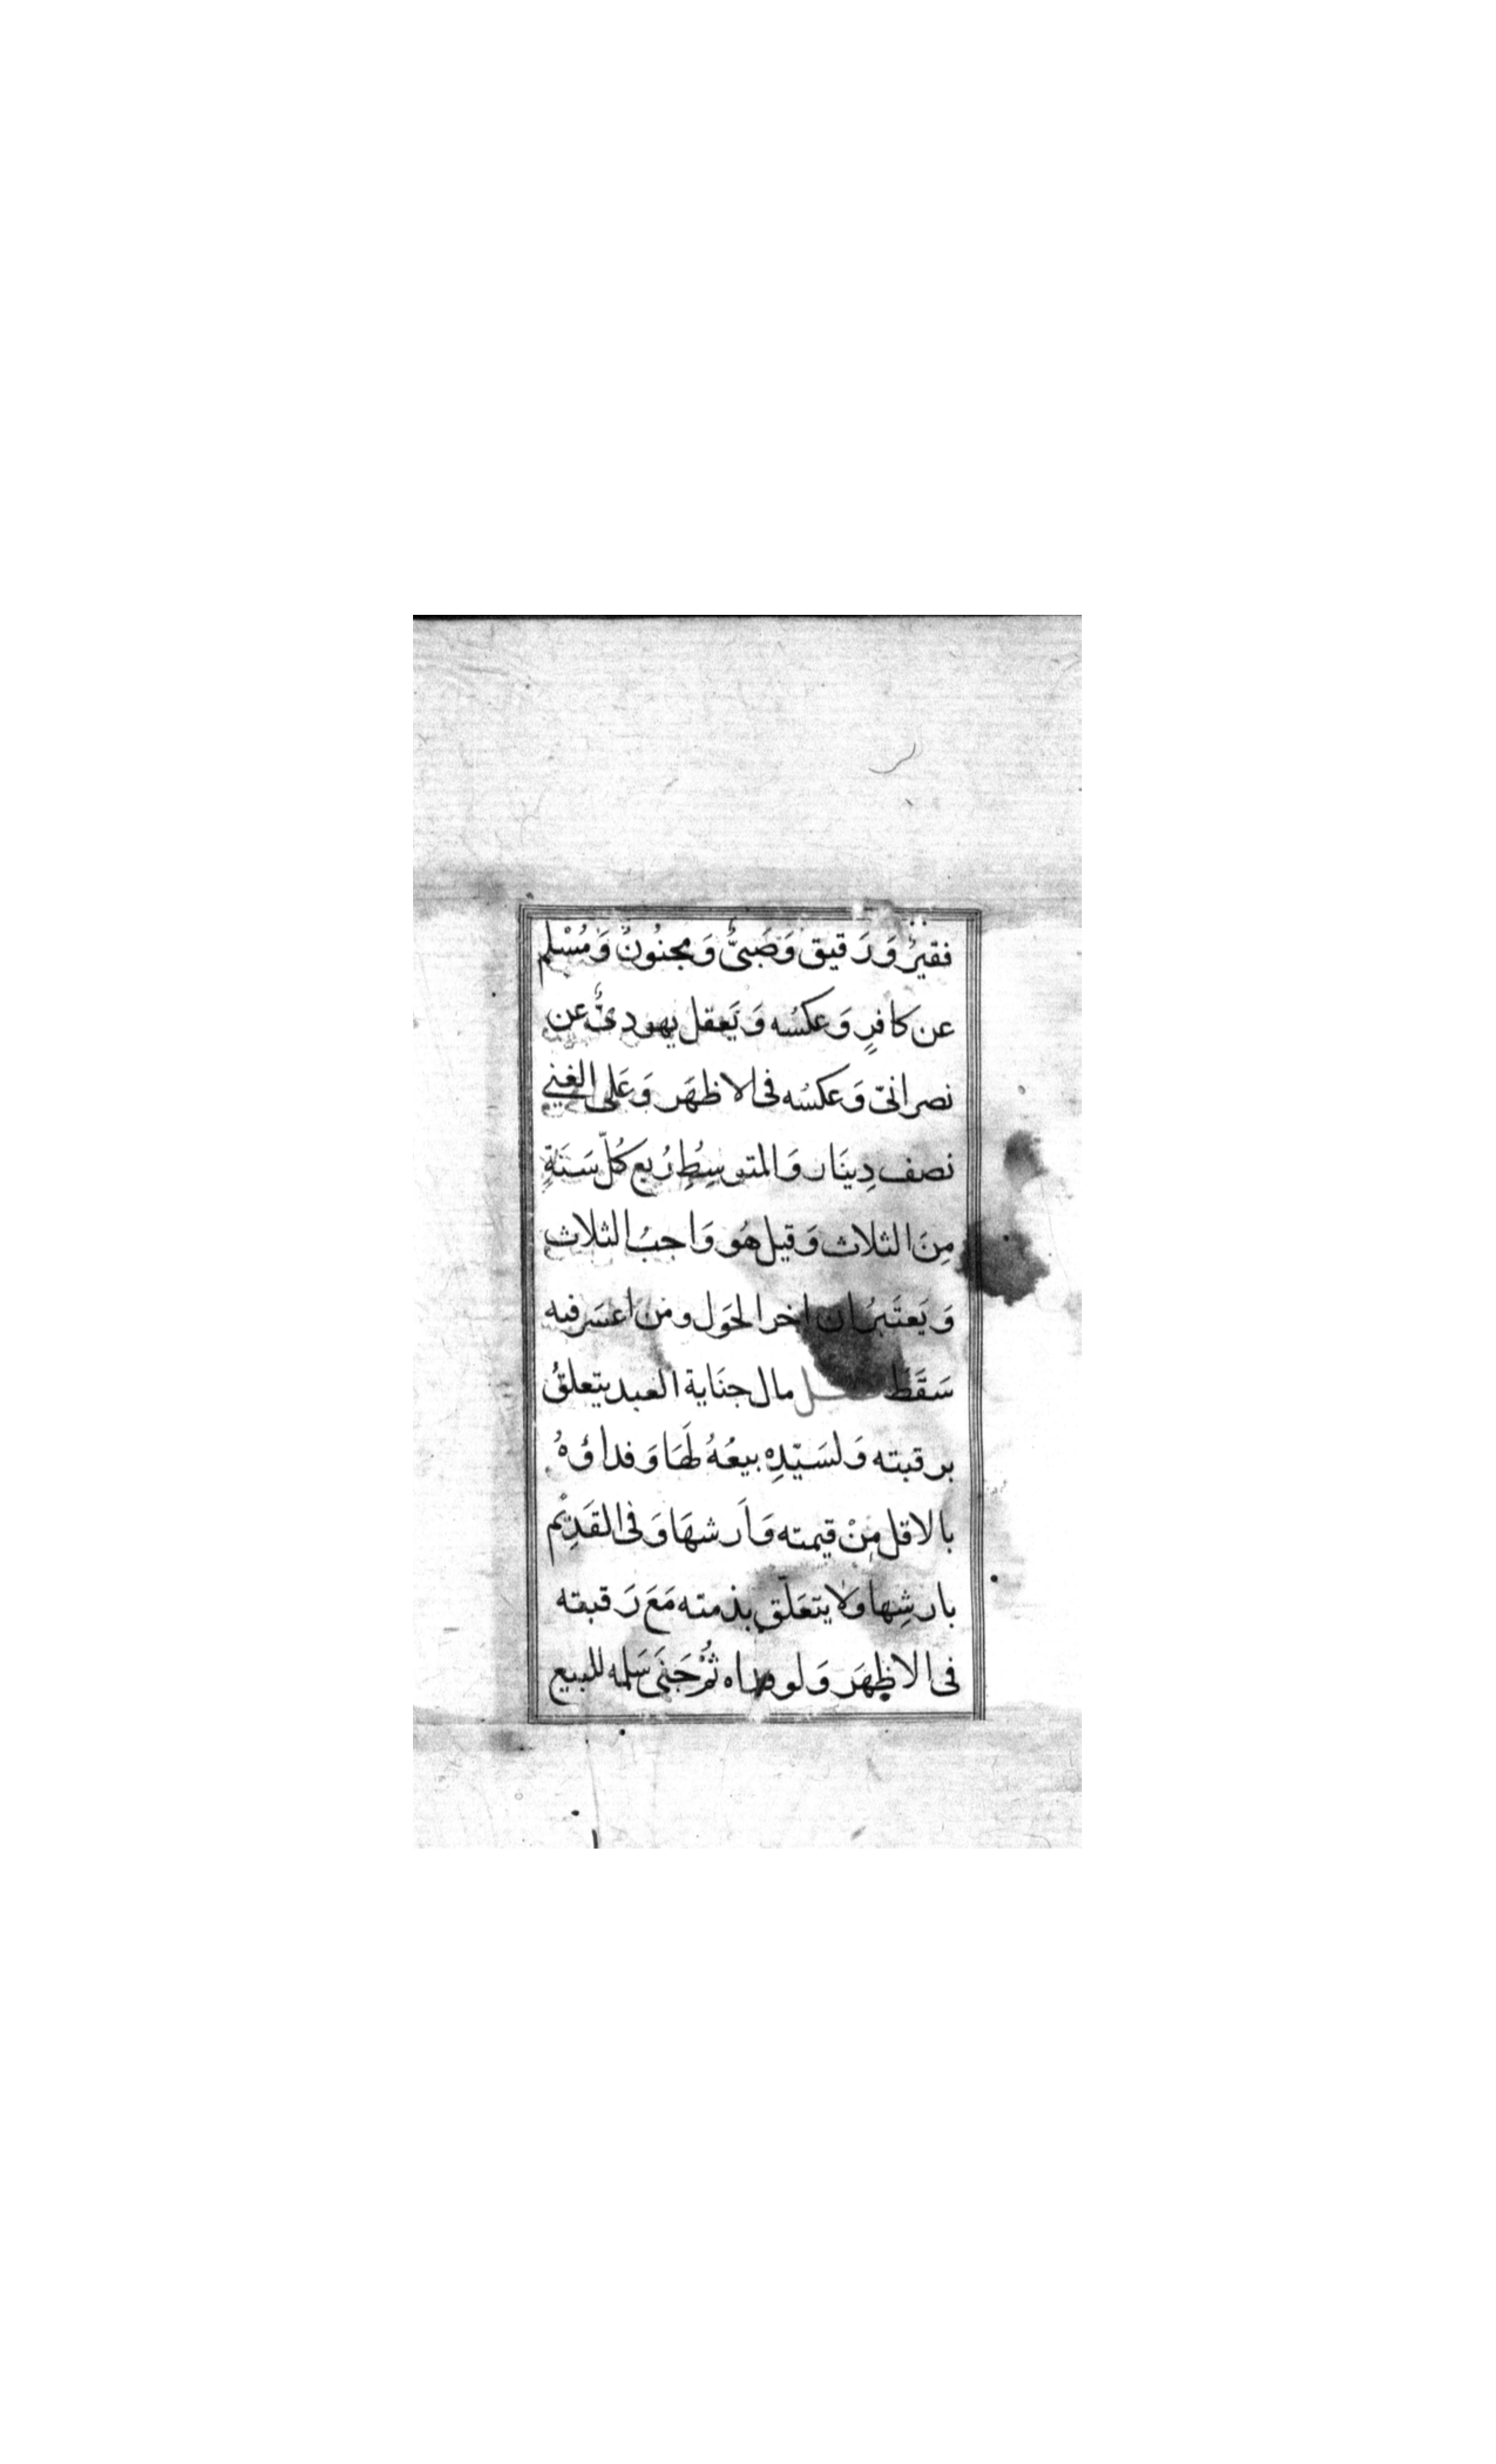 فقيرٌ وَرَقيق وَصَبىٌّ وَمجنُونٌ وَمُسْلم
عن كافرٍ وَعكسُه وَيَعقل يهودىٌّ عن
نصرانىّ وَعكسُه فى الاظهَر وَعَلى الغني
نصف دِينَار وَالمتوسِطِ رُبع كُلّ سَنَةٍ
مِنَ الثلاث وَقيل هُو وَاجبُ الثلاث
وَيَعتَبرُان اخر الحَول ومن اعسَر فيه
سَقَطَ مال جنَاية العبد يتعلقُ
برقبته وَلسَيّدِهِ بيعُهُ لهَا وَفداؤهُ
بالاقل مِنْ قيمته وَاَرشهَا وَفى القَدِيْم
بارشِها وَلا يتعَلّق بذمته مَعَ رَقبته
فى الاظهَر وَلو فداه ثُمّ جَنَى سَلمه للبيع